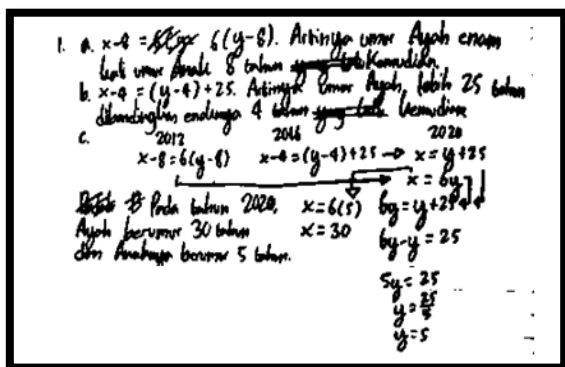 1. a. x-8 = 6(y-8). Artinya umur Ayah enam
kali umur Anak 8 tahun kemudian.
b. x-4 = (y-4)+25. Artinya umur Ayah, lebih 25 tahun
dibandingkan 4 tahun kemudian
c. 2012 2016 2020
x-8=6(y-8) x-4=(y-4)+25 → x=y+25
x = 6y
Pada tahun 2020, x=6(5) 6y=y+25
Ayah berumur 30 tahun x=30 6y-y = 25
dan Anaknya berumur 5 tahun.
5y = 25
y = 25/5
y = 5